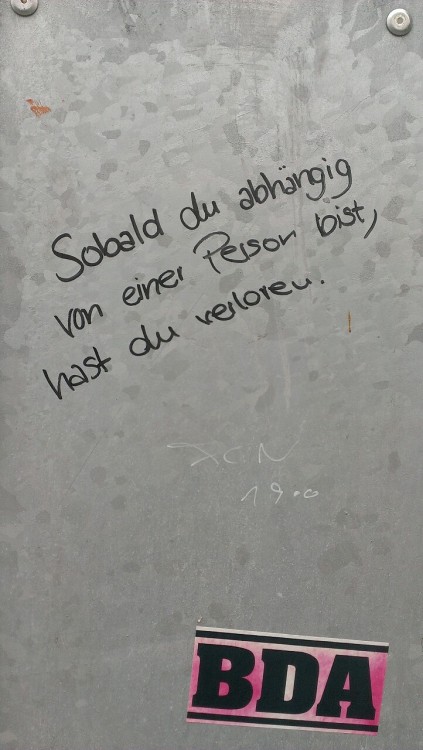 Sobald du abhängig
von einer Person bist,
hast du verloren.
FCN
1900
BDA